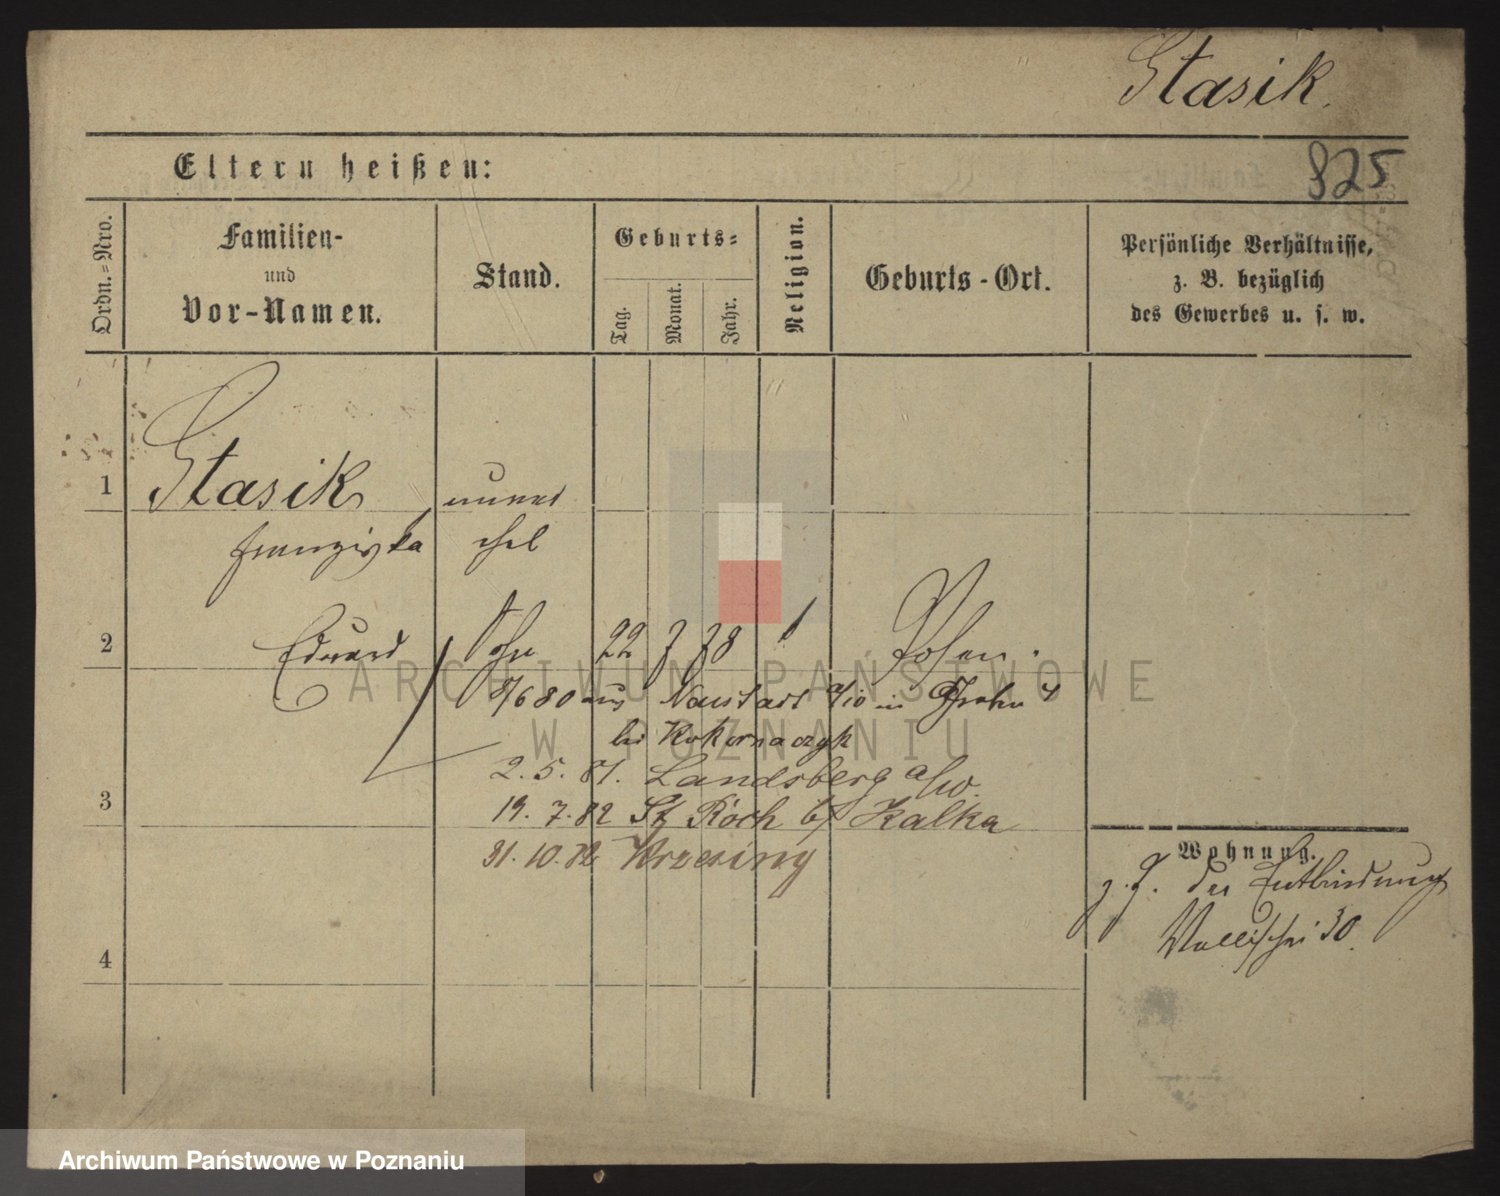 Stasik.
Eltern heißen:
825
Ordn.=Nro.
Familien-
und
Vor-Namen.
Stand.
Geburts=
Tag.
Monat.
Jahr.
Religion.
Geburts-Ort.
Persönliche Verhältnisse,
z. B. bezüglich
des Gewerbes u. s. w.
1
Stasik, unver
Franziska ehel
2
Eduard Sohn 22 7 78 Posen.
8/6 80 aus Neustadt in
bei
2. 5. 81. Landsberg a/w.
3
19. 7. 82 St Roch b/ Kalka
31. 10. 82 Krzesiny
Wohnung.
z. Z. der Entbindung
Wallischei 30.
4
ARCHIWUM PAŃSTWOWE
W POZNANIU
Archiwum Państwowe w Poznaniu